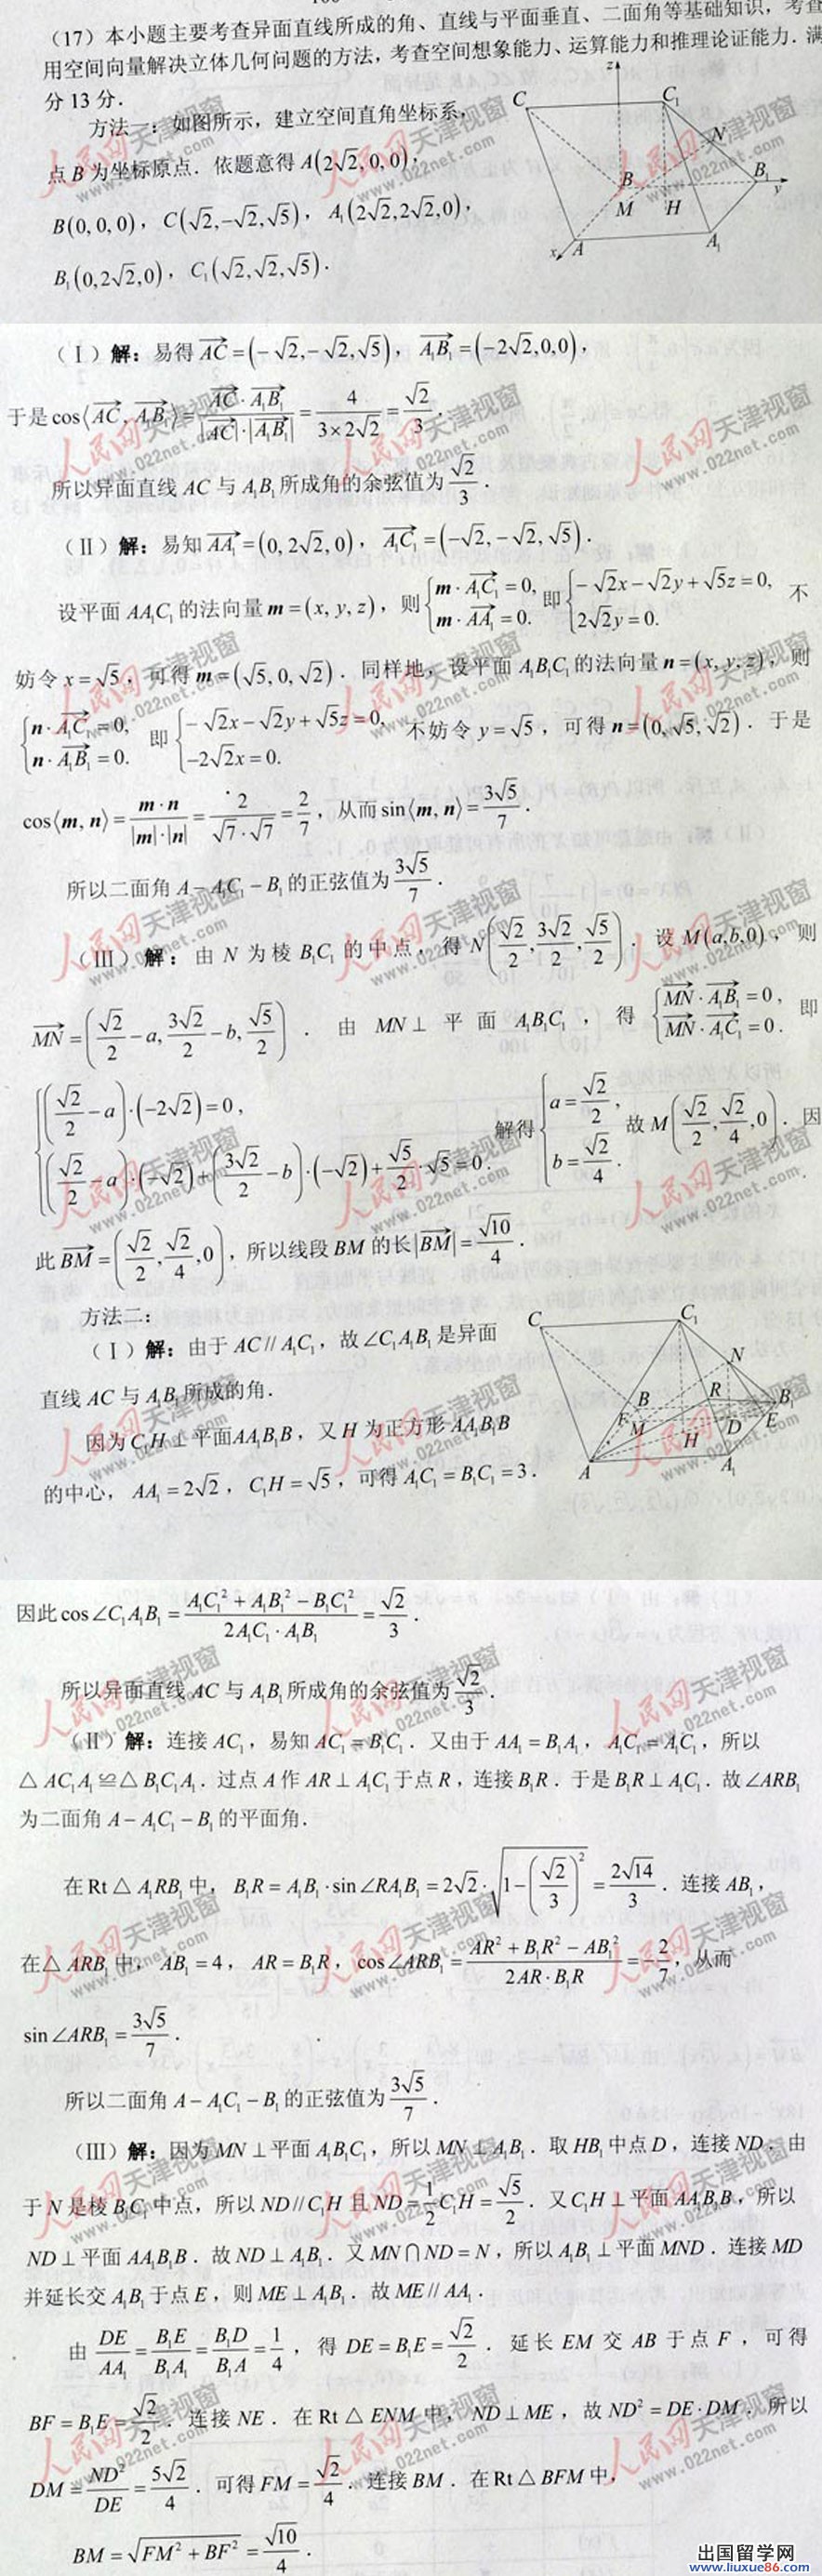 （17）本小题主要考查异面直线所成的角、直线与平面垂直、二面角等基础知识，考查
用空间向量解决立体几何问题的方法，考查空间想象能力、运算能力和推理论证能力．满
分 13 分．
方法一：如图所示，建立空间直角坐标系，
点 B 为坐标原点．依题意得 A(2√2,0,0)，
B(0,0,0)，C(√2,-√2,√5)，A₁(2√2,2√2,0)，
B₁(0,2√2,0)，C₁(√2,√2,√5)．
z C C₁ N B B₁ y M H x A A₁
（Ⅰ）解：易得 AC→=(-√2,-√2,√5)，A₁B₁→=(-2√2,0,0)，
于是 cos⟨AC→,A₁B₁→⟩= AC→·A₁B₁→/(|AC→|·|A₁B₁→|) = 4/(3×2√2) = √2/3．
所以异面直线 AC 与 A₁B₁所成角的余弦值为 √2/3．
（Ⅱ）解：易知 AA₁→=(0,2√2,0)，A₁C₁→=(-√2,-√2,√5)．
设平面 AA₁C₁的法向量 m=(x,y,z)，则 {m·A₁C₁→=0, m·AA₁→=0. 即 {-√2x-√2y+√5z=0, 2√2y=0. 不
妨令 x=√5，可得 m=(√5,0,√2)．同样地，设平面 A₁B₁C₁的法向量 n=(x,y,z)，则
{n·A₁C₁→=0, n·A₁B₁→=0. 即 {-√2x-√2y+√5z=0, -2√2x=0. 不妨令 y=√5，可得 n=(0,√5,√2)．于是
cos⟨m,n⟩= m·n/(|m|·|n|) = 2/(√7·√7) = 2/7，从而 sin⟨m,n⟩= 3√5/7．
所以二面角 A-A₁C₁-B₁的正弦值为 3√5/7．
（Ⅲ）解：由 N 为棱 B₁C₁的中点，得 N(√2/2,3√2/2,√5/2)．设 M(a,b,0)，则
MN→=(√2/2-a,3√2/2-b,√5/2)．由 MN⊥平面 A₁B₁C₁，得 {MN→·A₁B₁→=0, MN→·A₁C₁→=0. 即
{(√2/2-a)·(-2√2)=0, (√2/2-a)·(-√2)+(3√2/2-b)·(-√2)+√5/2·√5=0. 解得 {a=√2/2, b=√2/4. 故 M(√2/2,√2/4,0)．因
此 BM→=(√2/2,√2/4,0)，所以线段 BM 的长|BM→|=√10/4．
方法二：
（Ⅰ）解：由于 AC//A₁C₁，故∠C₁A₁B₁是异面
直线 AC 与 A₁B₁所成的角．
因为 C₁H⊥平面AA₁B₁B，又 H 为正方形 AA₁B₁B
的中心，AA₁=2√2，C₁H=√5，可得 A₁C₁=B₁C₁=3．
C C₁ N B R B₁ F M D E H A A₁
因此 cos∠C₁A₁B₁= (A₁C₁²+A₁B₁²-B₁C₁²)/(2A₁C₁·A₁B₁) = √2/3．
所以异面直线 AC 与 A₁B₁所成角的余弦值为 √2/3．
（Ⅱ）解：连接 AC₁，易知 AC₁=B₁C₁．又由于 AA₁=B₁A₁，A₁C₁=A₁C₁，所以
△AC₁A₁≌△B₁C₁A₁．过点 A 作 AR⊥A₁C₁于点 R，连接 B₁R．于是 B₁R⊥A₁C₁．故∠ARB₁
为二面角 A-A₁C₁-B₁的平面角．
在 Rt△A₁RB₁中，B₁R=A₁B₁·sin∠RA₁B₁=2√2·√(1-(√2/3)²)=2√14/3．连接 AB₁，
在△ARB₁中，AB₁=4，AR=B₁R，cos∠ARB₁= (AR²+B₁R²-AB₁²)/(2AR·B₁R) = -2/7，从而
sin∠ARB₁=3√5/7．
所以二面角 A-A₁C₁-B₁的正弦值为 3√5/7．
（Ⅲ）解：因为 MN⊥平面 A₁B₁C₁，所以 MN⊥A₁B₁．取 HB₁中点 D，连接 ND．由
于 N 是棱 B₁C₁中点，所以 ND//C₁H 且 ND=1/2 C₁H=√5/2．又 C₁H⊥平面 AA₁B₁B，所以
ND⊥平面 AA₁B₁B．故 ND⊥A₁B₁．又 MN∩ND=N，所以 A₁B₁⊥平面 MND．连接 MD
并延长交 A₁B₁于点 E，则 ME⊥A₁B₁．故 ME//AA₁．
由 DE/AA₁=B₁E/B₁A₁=B₁D/B₁A=1/4，得 DE=B₁E=√2/2．延长 EM 交 AB 于点 F，可得
BF=B₁E=√2/2．连接 NE．在 Rt△ENM 中，ND⊥ME，故 ND²=DE·DM．所以
DM=ND²/DE=5√2/4．可得 FM=√2/4．连接 BM．在 Rt△BFM 中，
BM=√(FM²+BF²)=√10/4．
人民网天津视窗
www.022net.com
出国留学网
www.liuxue86.com